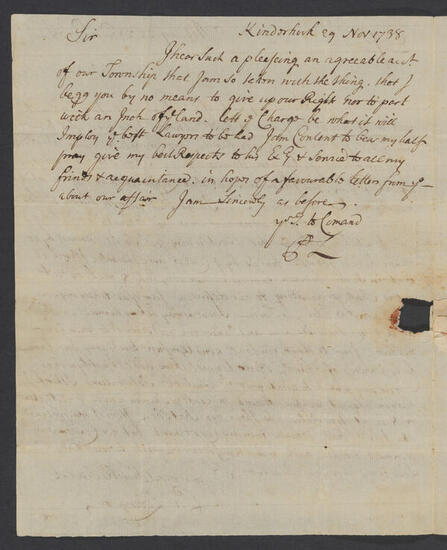 Kinderhook 29 Nov 1738
Sir
I hear Such a pleasing an agreeable acct
of our Township that I am So taken with the thing, that I
begg you by no means to give up our Right nor to part
with an Inch of ye Land. Lett ye Charge be what it will
Imploy ye best Lawyers to be had I am Content to bear my half
pray give my best Respects to his Ex & Service to all my
friends & acquaintance. in hopes of a favourable Letter from yo
about our affair I am Sincerely as before
yrs to Comand